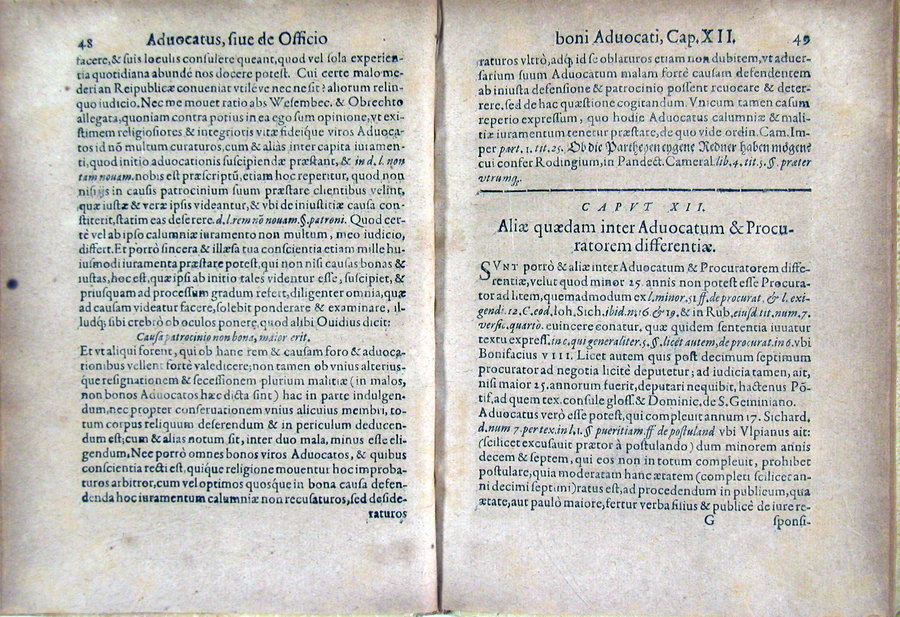 48 Advocatus, siue de Officio
facere, & suis loculis consulere queant, quod vel sola experien-
tia quotidiana abundè nos docere potest. Cui certe malo me-
deri an Reipublicæ conueniat vtiléve nec ne sit? aliorum relin-
quo iudicio. Nec me mouet ratio abs Wesembec. & Obrechto
allegata, quoniam contra potius in ea ego sum opinione, vt exi-
stimem religiosiores & integrioris vitæ fideique viros Aduoca-
tos id nō multum curaturos, cum & alias inter capita iuramen-
ti, quod initio aduocationis suscipiendæ præstant, & in d. l. non
tam nouam. nobis est præscriptū, etiam hoc reperitur, quod non
nisi ijs in causis patrocinium suum præstare clientibus velint,
quæ iustæ & veræ ipsis videantur, & vbi de iniustitiæ causa con-
stiterit, statim eas deserere. d. l. rem nō nouam. §. patroni. Quod cer-
tè vel ab ipso calumniæ iuramento non multum, meo iudicio,
differt. Et porrò sincera & illæsa tua conscientia etiam mille hu-
iusmodi iuramenta præstare potest, qui non nisi causas bonas &
iustas, hoc est, quæ ipsi ab initio tales videntur esse, suscipiet, &
priusquam ad processum gradum refert, diligenter omnia, quæ
ad causam videatur facere, solebit ponderare & examinare, il-
ludq; sibi crebrò ob oculos ponere, quod alibi Ouidius dicit:
Causa patrocinio non bona, maior erit.
Et vt aliqui forent, qui ob hanc rem & causam foro & aduoca-
tionibus vellent fortè valedicere; non tamen ob vnius alterius-
que resignationem & secessionem plurium malitiæ (in malos,
non bonos Aduocatos hæc dicta sint) hac in parte indulgen-
dum, nec propter conseruationem vnius alicuius membri, to-
tum corpus reliquum deserendum & in periculum deducen-
dum est; cum & alias notum sit, inter duo mala, minus esse eli-
gendum. Nec porrò omnes bonos viros Aduocatos, & quibus
conscientia recti est, quique religione mouentur hoc improba-
turos arbitror, cum vel optimos quosque in bona causa defen-
denda hoc iuramentum calumniæ non recusaturos, sed deside-
raturos
boni Advocati, Cap. XII. 49
raturos vltrò, adq; id se oblaturos etiam non dubitem, vt aduer-
sarium suum Aduocatum malam fortè causam defendentem
ab iniusta defensione & patrocinio possent reuocare & deter-
rere. sed de hac quæstione cogitandum. Vnicum tamen casum
reperio expressum, quo hodie Aduocatus calumniæ & mali-
tiæ iuramentum tenetur præstare, de quo vide ordin. Cam. Im-
per part. 1. tit. 25. Ob die Partheyen eygene Redner haben mögenē
cui confer Rodingium, in Pandect. Cameral. lib. 4. tit. 5. §. præter
vtrumq;.
CAPVT XII.
Aliæ quædam inter Aduocatum & Procu-
ratorem differentiæ.
SVNT porrò & aliæ inter Aduocatum & Procuratorem diffe-
rentiæ, velut quod minor 25. annis non potest esse Procura-
tor ad litem, quemadmodum ex l. minor. 51 ff. de procurat. & l. exi-
gendi. 12. C. eod. Ioh. Sich. ibid. n. 16 & 19. & in Rub. eiusd. tit. num. 7.
versic. quartò. euincere conatur. quæ quidem sententia iuuatur
textu express. in c. qui generaliter. 5. §. licet autem, de procurat. in 6. vbi
Bonifacius VIII. Licet autem quis post decimum septimum
procurator ad negotia licitè deputetur; ad iudicia tamen, ait,
nisi maior 25. annorum fuerit, deputari nequibit, hactenus Pō-
tif. ad quem tex. consule gloss. & Dominic. de S. Geminiano.
Aduocatus verò esse potest, qui compleuit annum 17. Sichard.
d. num 7. per tex. in l. 1. § pueritiam. ff de postuland vbi Vlpianus ait:
(scilicet excusauit prætor à postulando) dum minorem annis
decem & septem, qui eos non in totum compleuit, prohibet
postulare, quia moderatam hanc ætatem (completi scilicet an-
ni decimi septimi) ratus est, ad procedendum in publicum, qua
ætate, aut paulò maiore, fertur verba filius & publicè de iure re-
G sponsi-